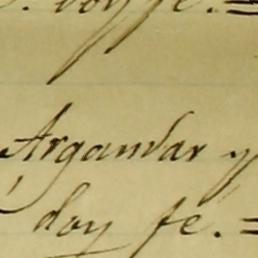 doy fe. =
Argandar y
doy fe. =